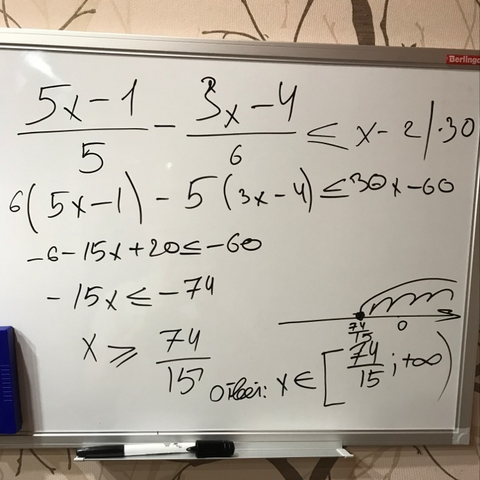 Berlingo
(5x-1)/5 - (3x-4)/6 ≤ x-2 |·30
6(5x-1) - 5(3x-4) ≤ 30x-60
-6-15x+20≤-60
-15x ≤ -74
x ⩾ 74/15
74/15 0
Ответ: x∈[74/15; +∞)